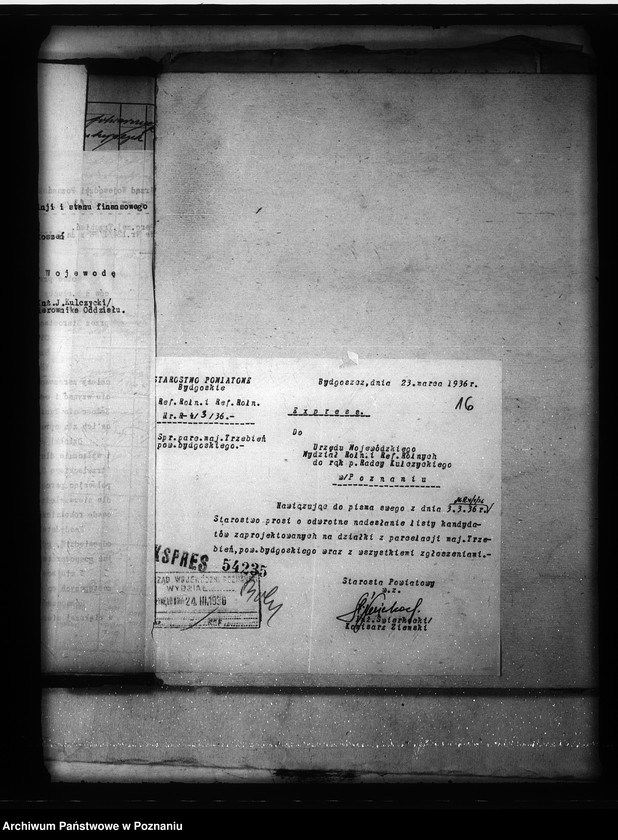 nji i stanu finansowego
łoszeń
Wojewodę
inż.J.Kulczycki/
ierownika Oddziału.
STAROSTWO POWIATOWE
Bydgoskie
Ref.Roln.i Ref.Roln.
Nr.R-4/3/36.-
Spr.parc.maj.Trzebień
pow.bydgoskiego.-
Bydgoszcz,dnia 23.marca 1936 r.
16
Express.
Do
Urzędu Wojewódzkiego
Wydział Roln.i Ref.Rolnych
do rąk p.Radcy Kulczyckiego
w/Poznaniu
Nawiązując do pisma swego z dnia 3.3.36 r.
Starostwo prosi o odwrotne nadesłanie listy kandyda-
tów zaprojektowanych na działki z parcelacji maj.Trze-
bień,pow.bydgoskiego wraz z wszystkiemi zgłoszeniami.-
EKSPRES 54235
URZĄD WOJEWÓDZKI POZNAŃSKI
WYDZIAŁ
24.III.1936
Starosta Powiatowy
w.z.
/inż.Świerhocki/
Komisarz Ziemski
Archiwum Państwowe w Poznaniu